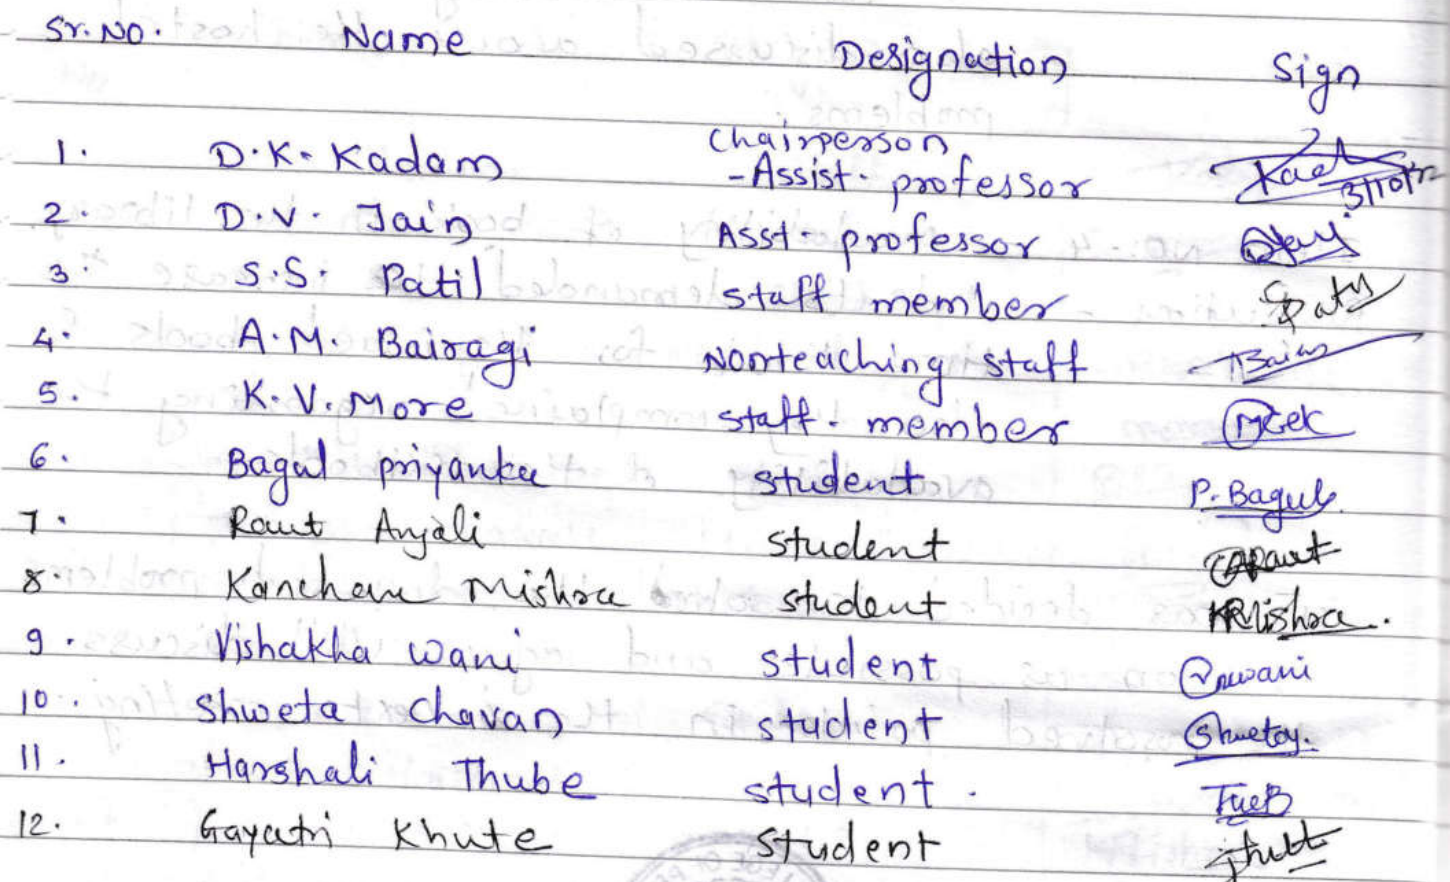 Sr. No. Name Designation Sign
Chairperson
1. D.K. Kadam - Assist. professor Kad 3/10/12
2. D.V. Jain Asst professor
3. S.S. Patil staff member
4. A.M. Bairagi Nonteaching staff
5. K.V. More staff. member
6. Bagul priyanka student P. Bagul.
7. Raut Anjali student ARaut
8. Kanchan Mishra student KRMishra.
9. Vishakha wani student
10. Shweta Chavan student
11. Harshali Thube student.
12. Gayatri Khute student